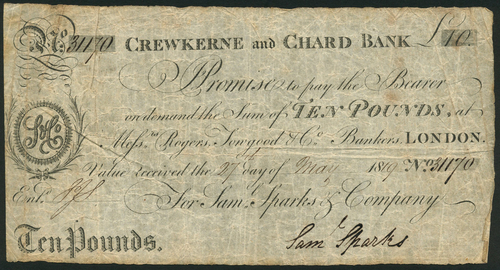 No 31170 CREWKERNE and CHARD BANK £10.
Promise to pay the Bearer
on demand the Sum of TEN POUNDS, at
Messrs. Rogers, Towgood & Co. Bankers, LONDON.
Value received the 27 day of May 1819 No 31170
Entd.
For Saml. Sparks & Company
Saml Sparks
Ten Pounds.